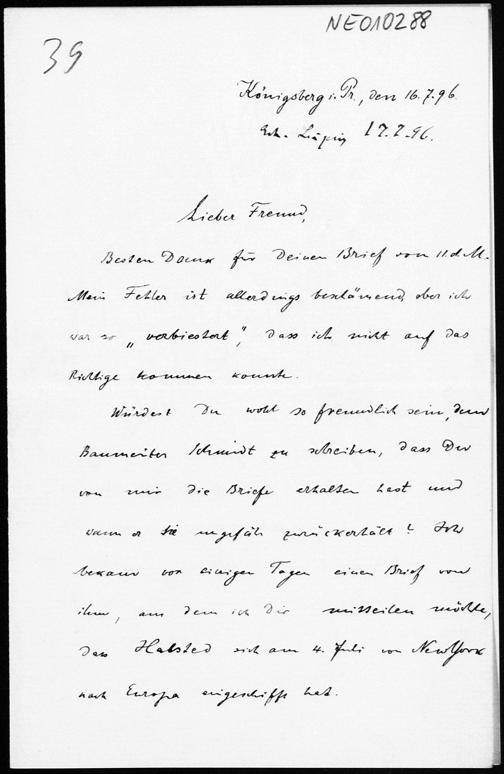 NE010288
39
Königsberg i. Pr., den 16.7.96.
Erh. Leipzig 17.7.96.
Lieber Freund,
Besten Dank für Deinen Brief vom 11. d. M.
Mein Fehler ist allerdings beschämend, aber ich
war so „verbiestert", dass ich nicht auf das
Richtige kommen konnte.
Würdest Du wohl so freundlich sein, dem
Baumeister Schmidt zu schreiben, dass Du
von mir die Briefe erhalten hast und
wann er sie ungefähr zurückerhält? Ich
bekam vor einigen Tagen einen Brief von
ihm, aus dem ich Dir mitteilen möchte,
dass Halsted sich am 4. Juli von New York
nach Europa eingeschifft hat.